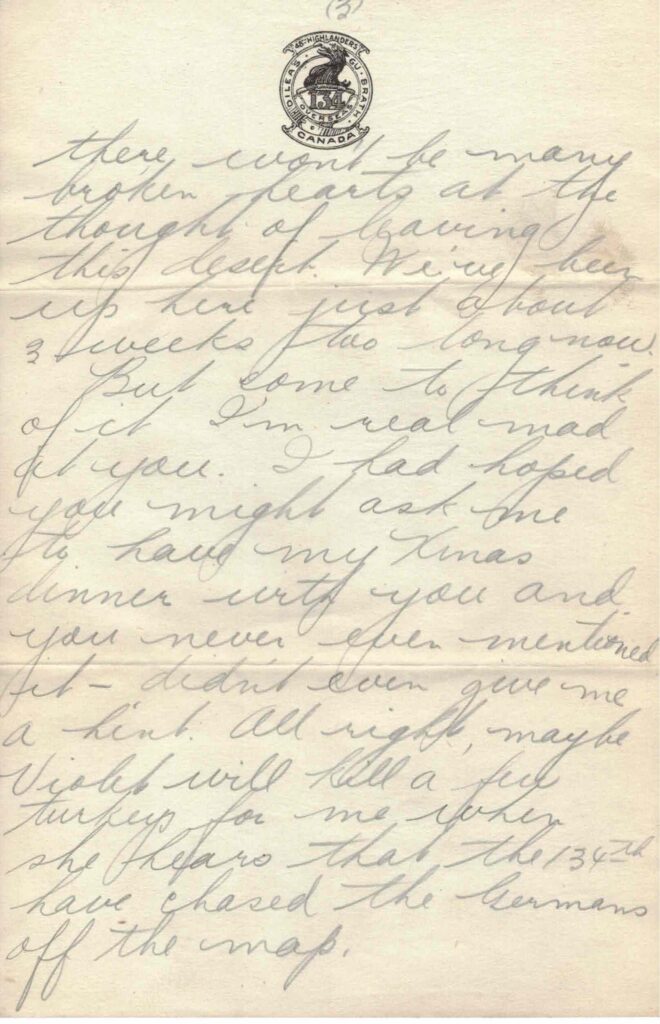 (3)
48TH HIGHLANDERS
DILEAS GU BRATH
134
OVERSEAS
CANADA
there won't be many
broken hearts at the
thought of leaving
this desert. We've been
up here just about
3 weeks too long now.
But come to think
of it I'm real mad
at you. I had hoped
you might ask me
to have my Xmas
dinner with you and
you never even mentioned
it - didn't even give me
a hint. All right, maybe
Violet will kill a few
turkeys for me when
she hears that the 134th
have chased the Germans
off the map.